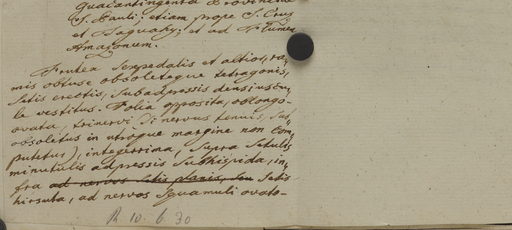 Guaicantingenta Provinciae
S. Pauli; etiam prope S. Cruz
et Taguahy; et ad Flumen
Amazonum.
Frutex sexpedalis et altior, ra-
mis obtuse obsoleteque tetragonis,
setis erectis, subadpressis densiuscu-
le vestitus. Folia opposita, oblongo-
ovata, trinervi (si nervus tenuis, sub-
obsoletus in utroque margine non com-
putetur), integerrima, supra setulis
minutulis adpressis subhispida, in-
fra ad nervos setis planis, seu setis
hirsuta, ad nervos squamuli ovato-
R. 10. 6. 30